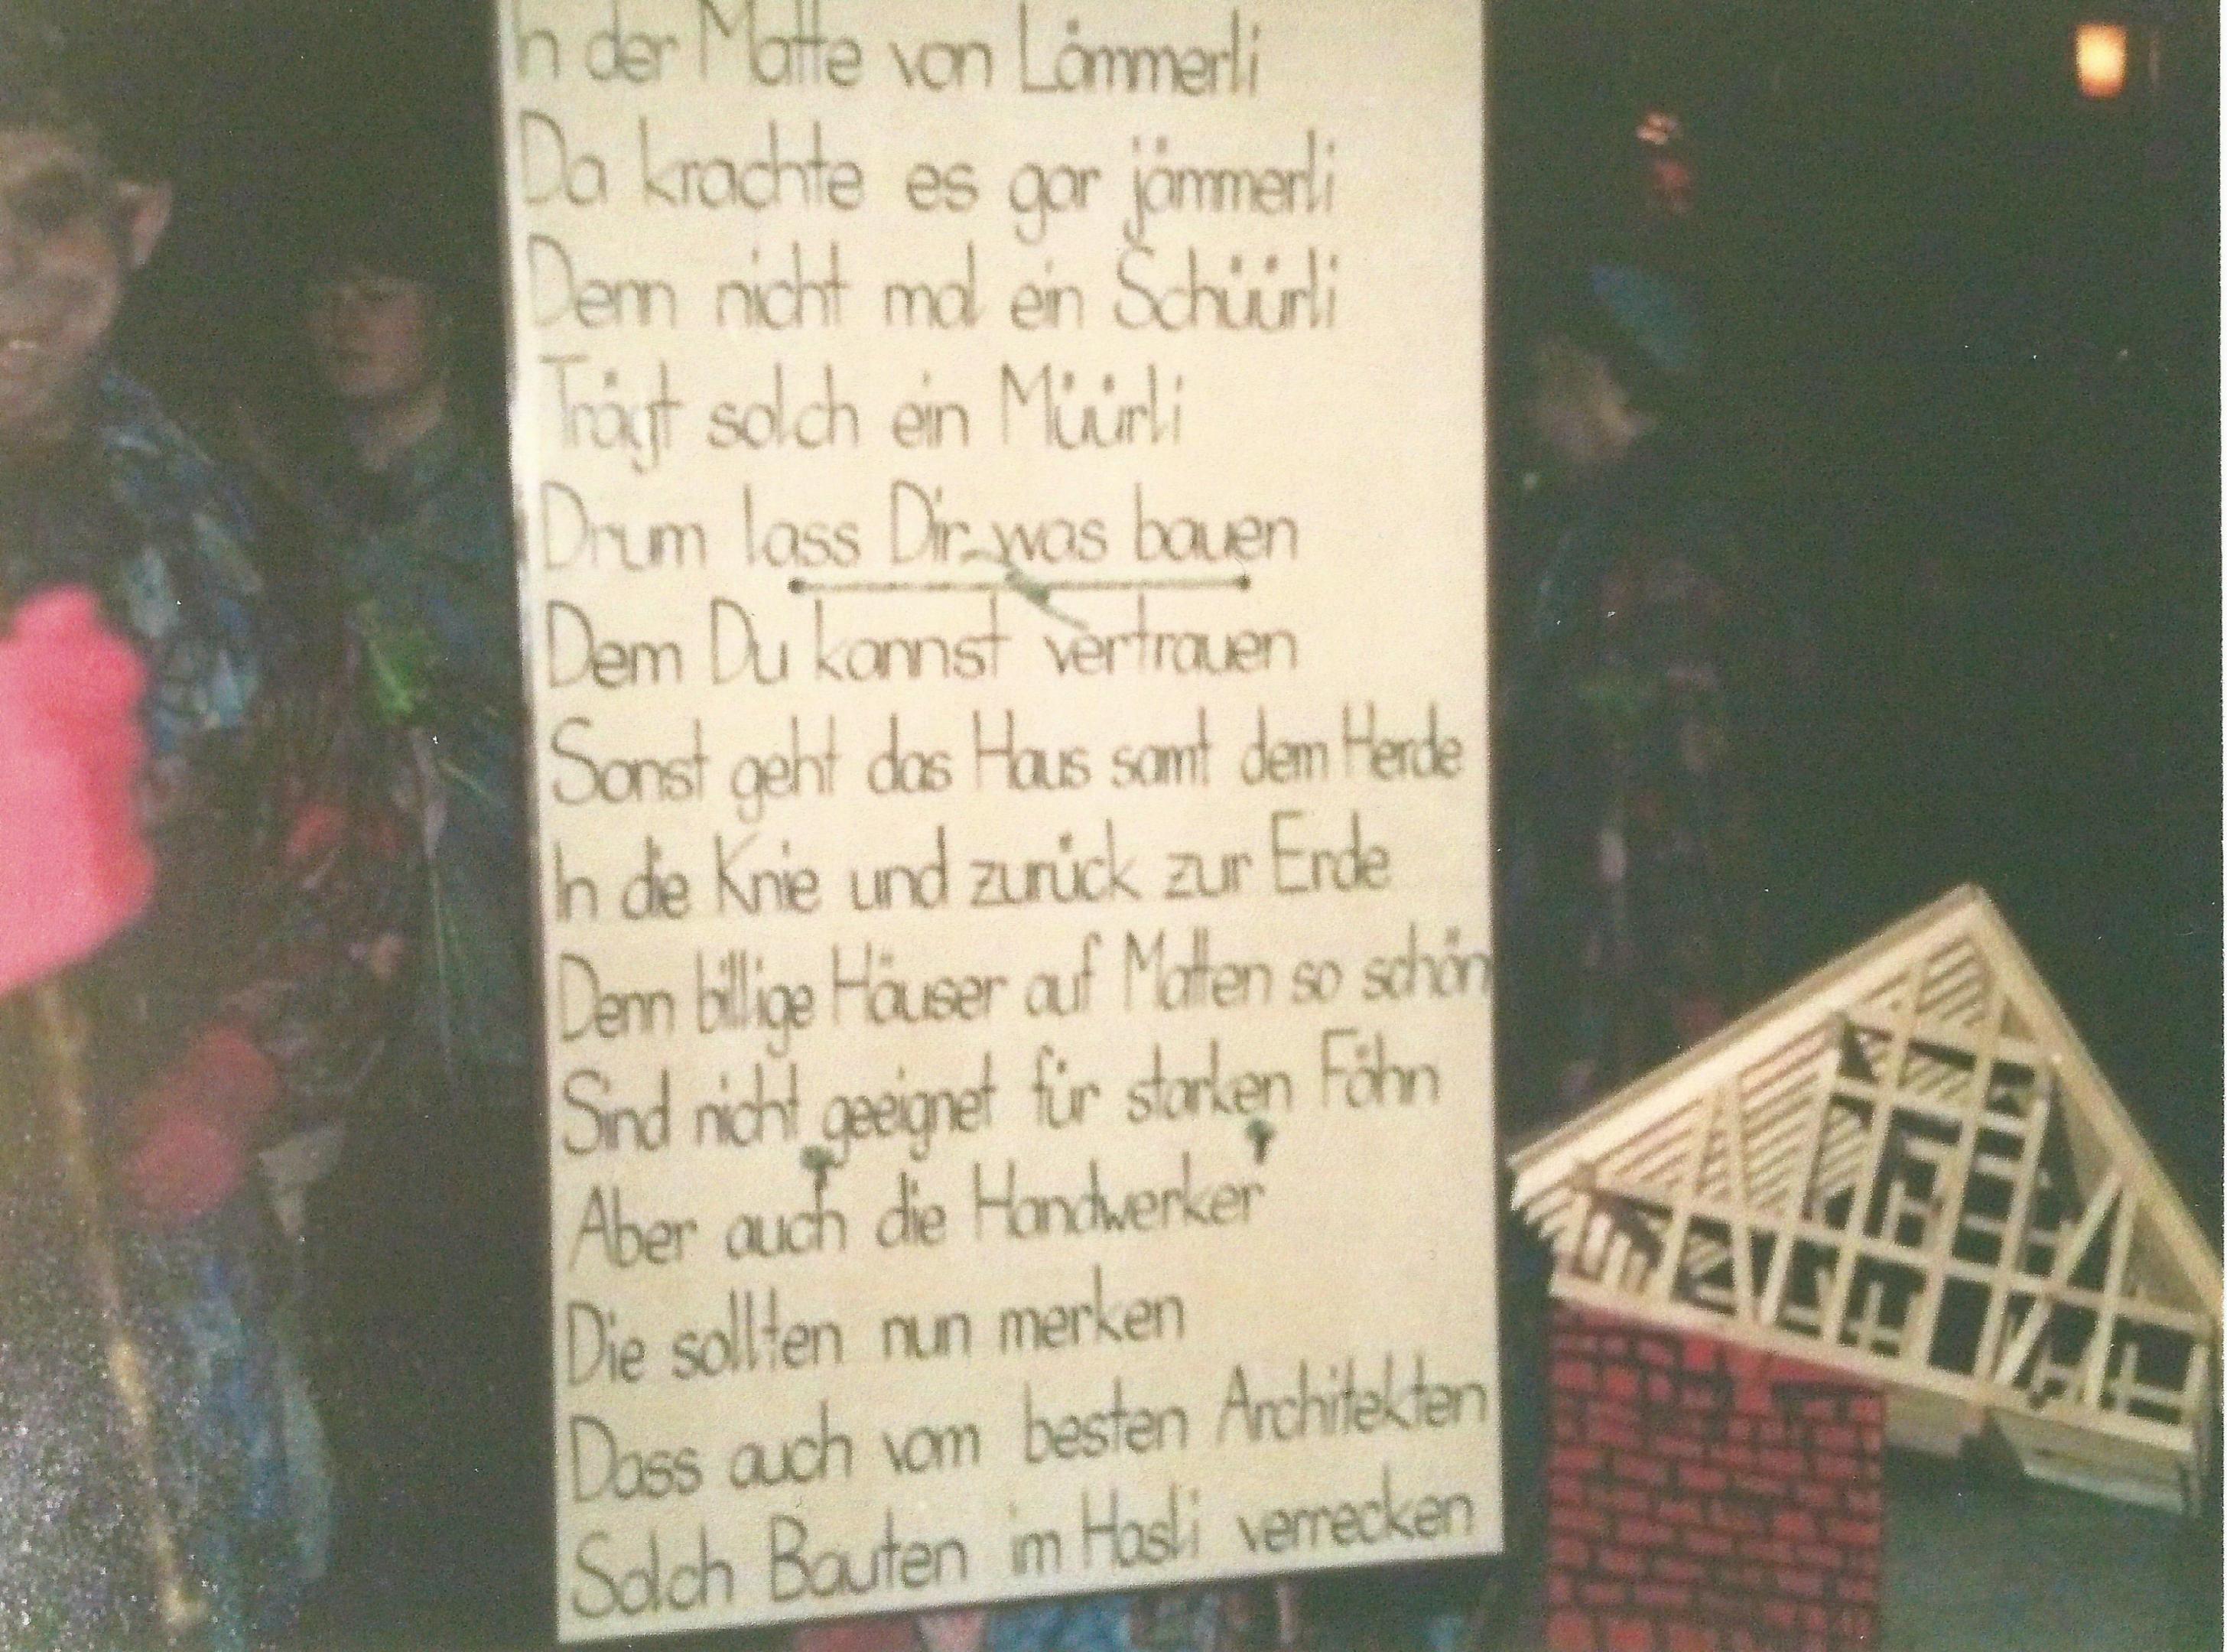 In der Matte von Lämmerli
Da krachte es gar jämmerli
Denn nicht mal ein Schüürli
Trägt solch ein Müürli
Drum lass Dir was bauen
Dem Du kannst vertrauen
Sonst geht das Haus samt dem Herde
In die Knie und zurück zur Erde
Denn billige Häuser auf Matten so schön
Sind nicht geeignet für starken Föhn
Aber auch die Handwerker
Die sollten nun merken
Dass auch vom besten Architekten
Solch Bauten im Hasli verrecken